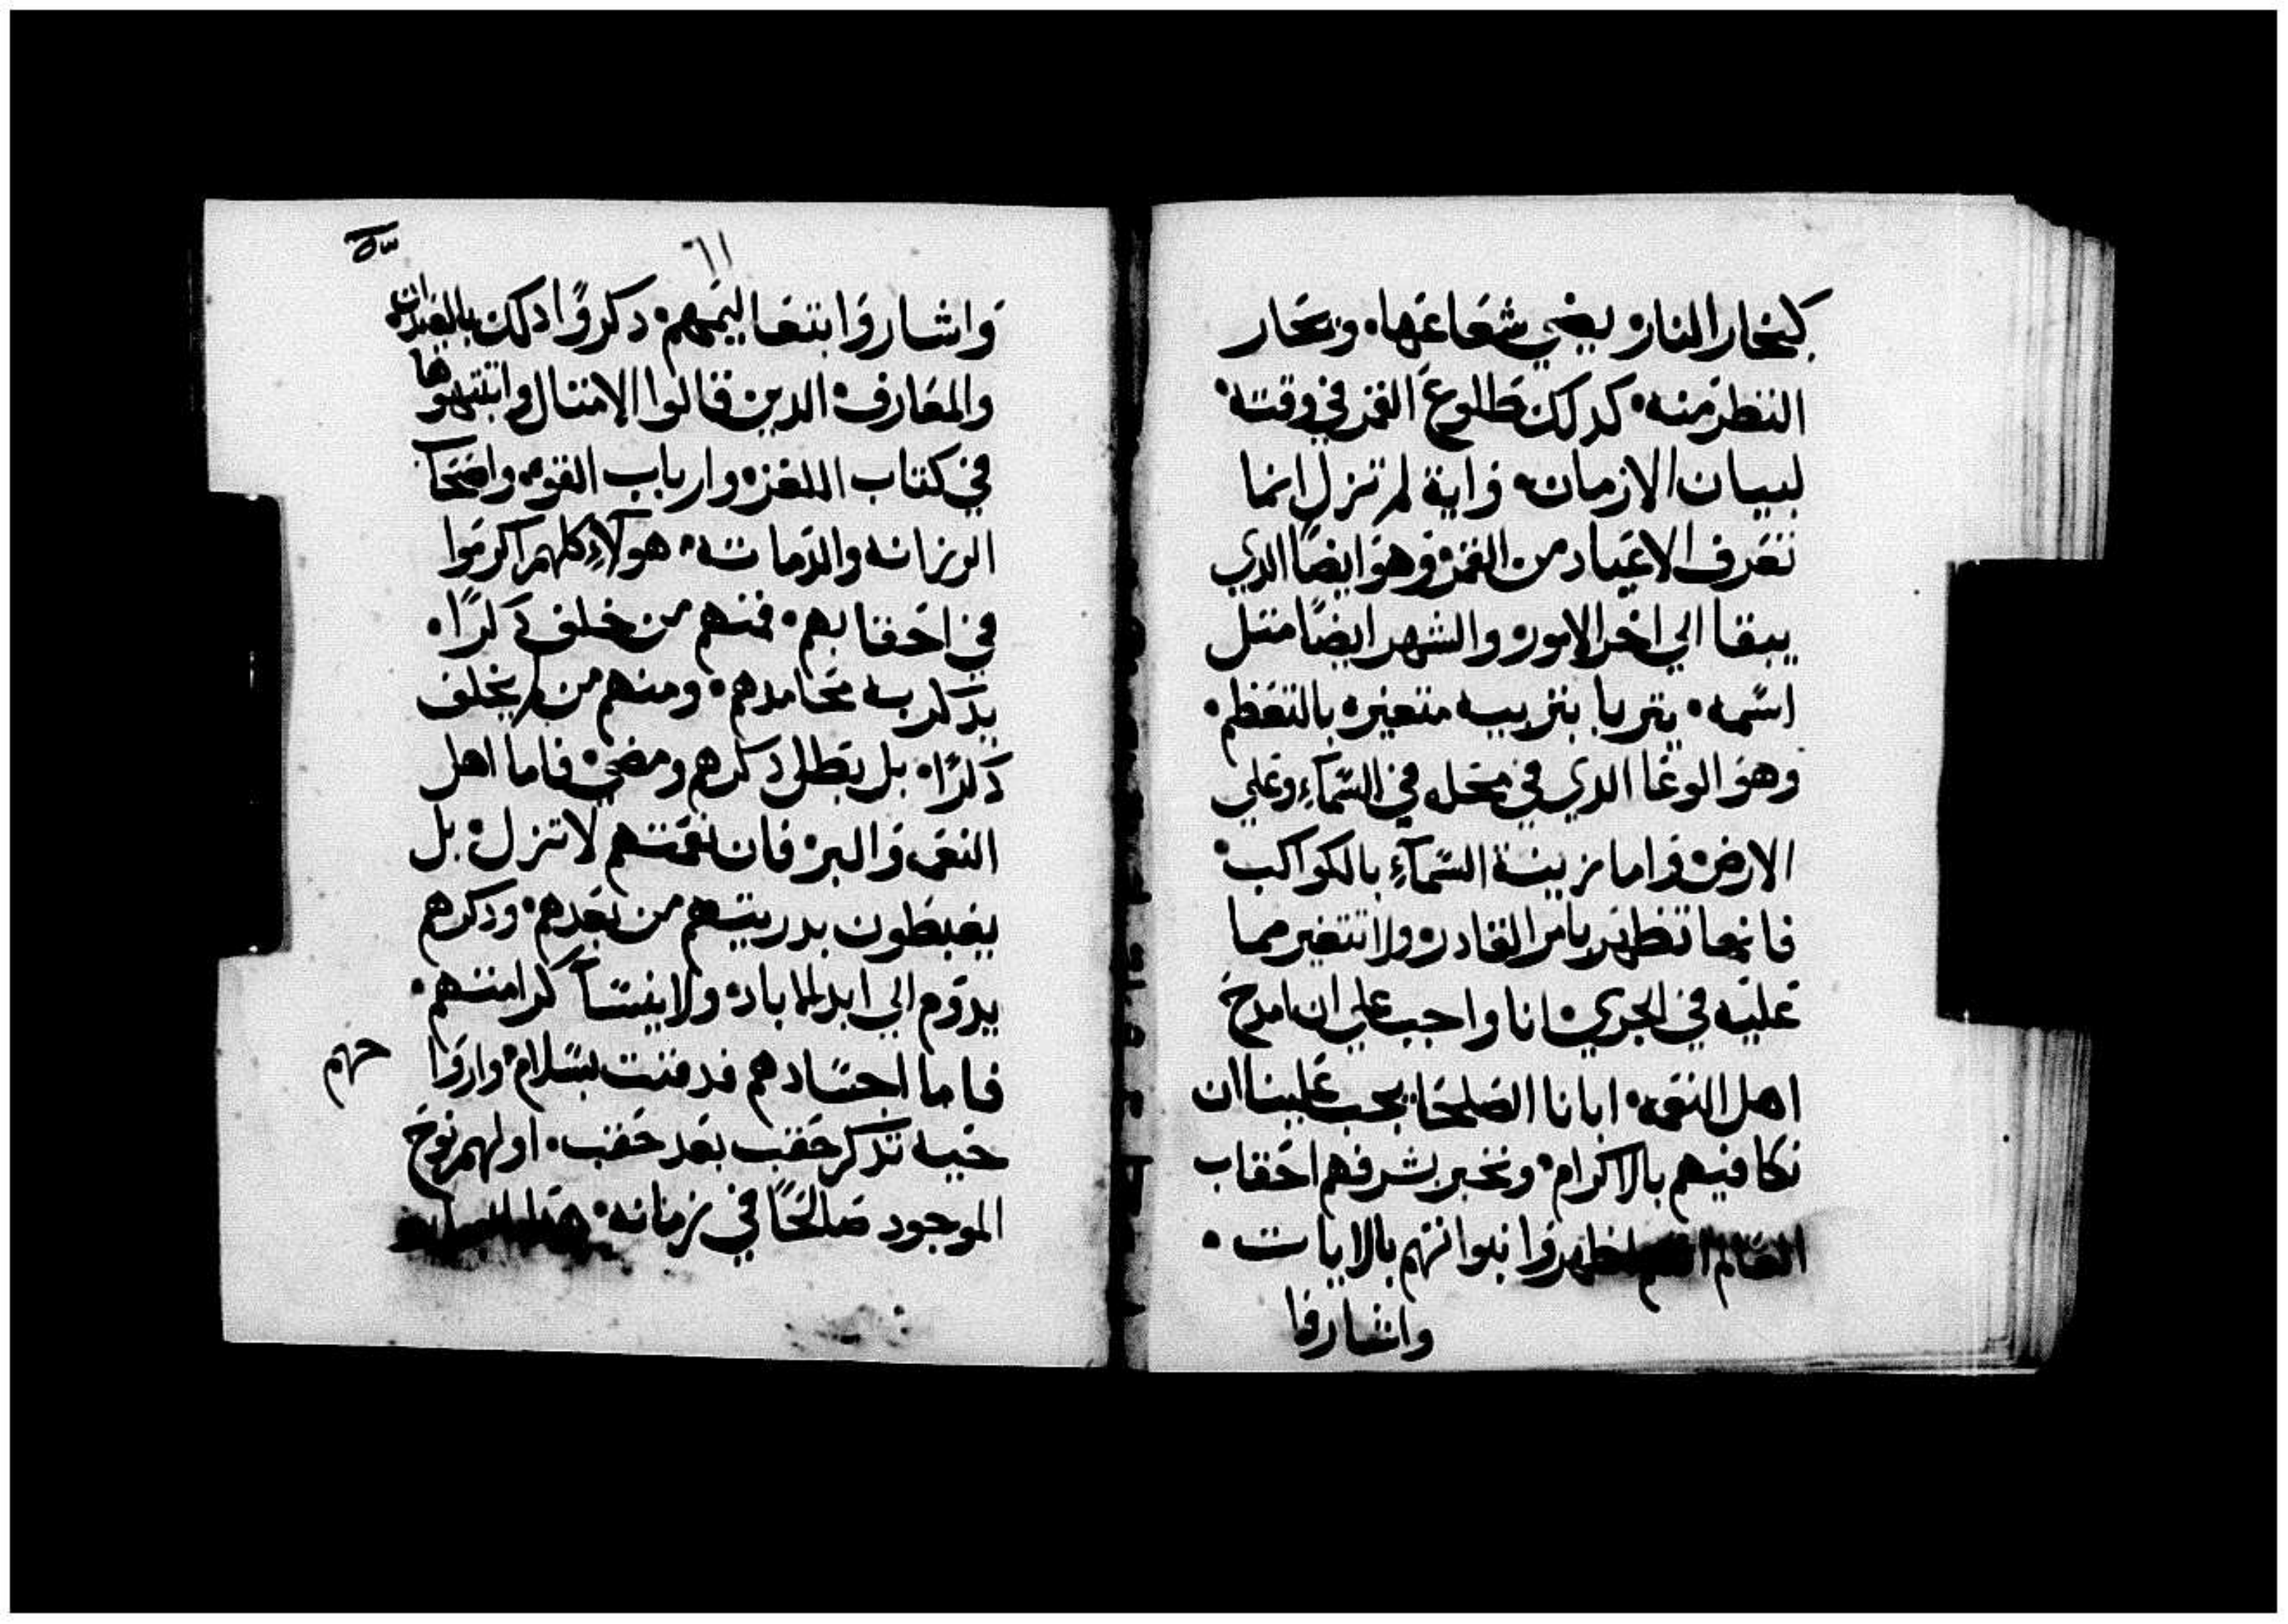 كبخار النار يضي شعاعها. وتحار
النظر منه. كدلك طلوع القمر في وقته.
لبيان الازمان. واية لم تزل انما
تعرف الاعياد من القمر وهو ايضًا الدي
يبقا الي اخر الامور. والشهر ايضًا متل
اسمه. يتربا بتربيه متغيره بالتعظم.
وهو الوعا الدي في محله في السمآء وعلي
الارض. واما زينة السمآء بالكواكب.
فانها تظهر بامر القادر. ولا تتغير مما
عليه في الجري. انا واجب علي ان امدح
اهل النعمه. ابانا الصلحا. يجب علينا ان
نكافيهم بالاكرام. ونخبر بشرفهم احقاب
العالم اظهروا نبواتهم بالايات.
واشاروا
٦١
واشاروا بتعاليمهم. دكروا دلك بالعبران
والمعارف. الدين قالوا الامتال واتبتوها
في كتاب اللغز. وارباب القوه. واصحاب
الرزانه والدماته. هولآء كلهم اكرموا
في احقابهم. فمنهم من خلف دكرًا.
يدكر به محامدهم. ومنهم من لم يخلف
دكرًا. بل بطل دكرهم ومضي. فاما اهل
النعم والبر. فان نعمتهم لا تزل. بل
يغبطون بدريتهم من بعدهم. ودكرهم
يدوم الي ابد الاباد. ولا ينسا كرامتهم.
فاما اجسادهم فدفنت بسلام. واروا حهم
حيه تدكر حقب بعد حقب. اولهم نوح
الموجود صالحًا في زمانه. هدا